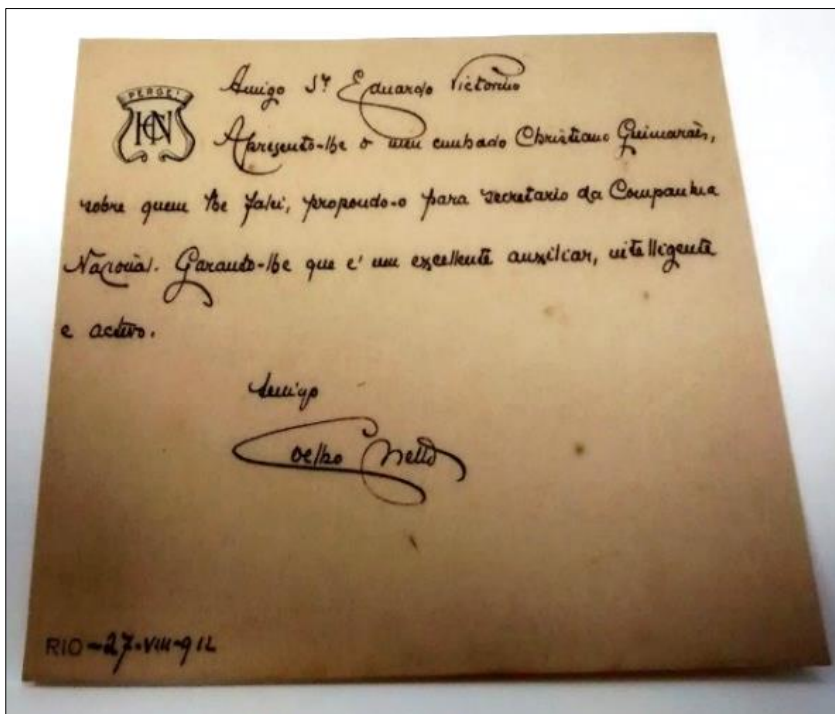 PERGE!
HCN
Amigo Sr Eduardo Victorino
Apresento-lhe o meu cunhado Christiano Guimarães,
sobre quem lhe falei, propondo-o para secretario da Companhia
Nacional. Garanto-lhe que e' um excellente auxiliar, intelligente
e activo.
Amigo
Coelho Netto
RIO-27-VIII-912